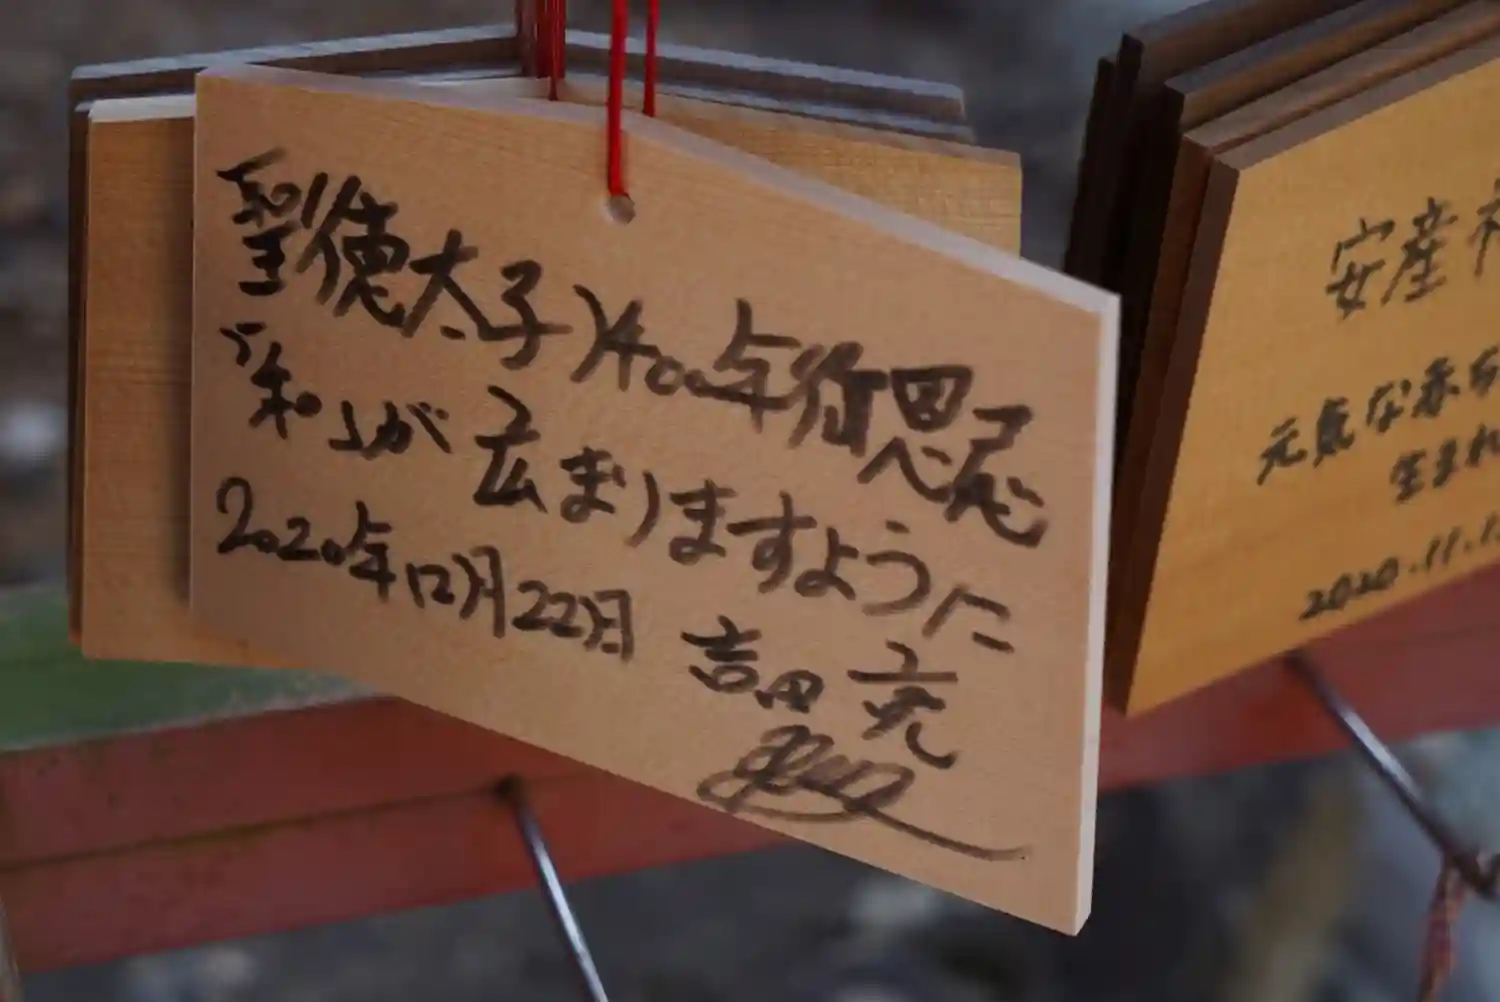 聖徳太子1400年御遠忌
「和」が広まりますように
2020年12月22日 吉田 亮
安産
元気な赤
生まれ
2020.11.1